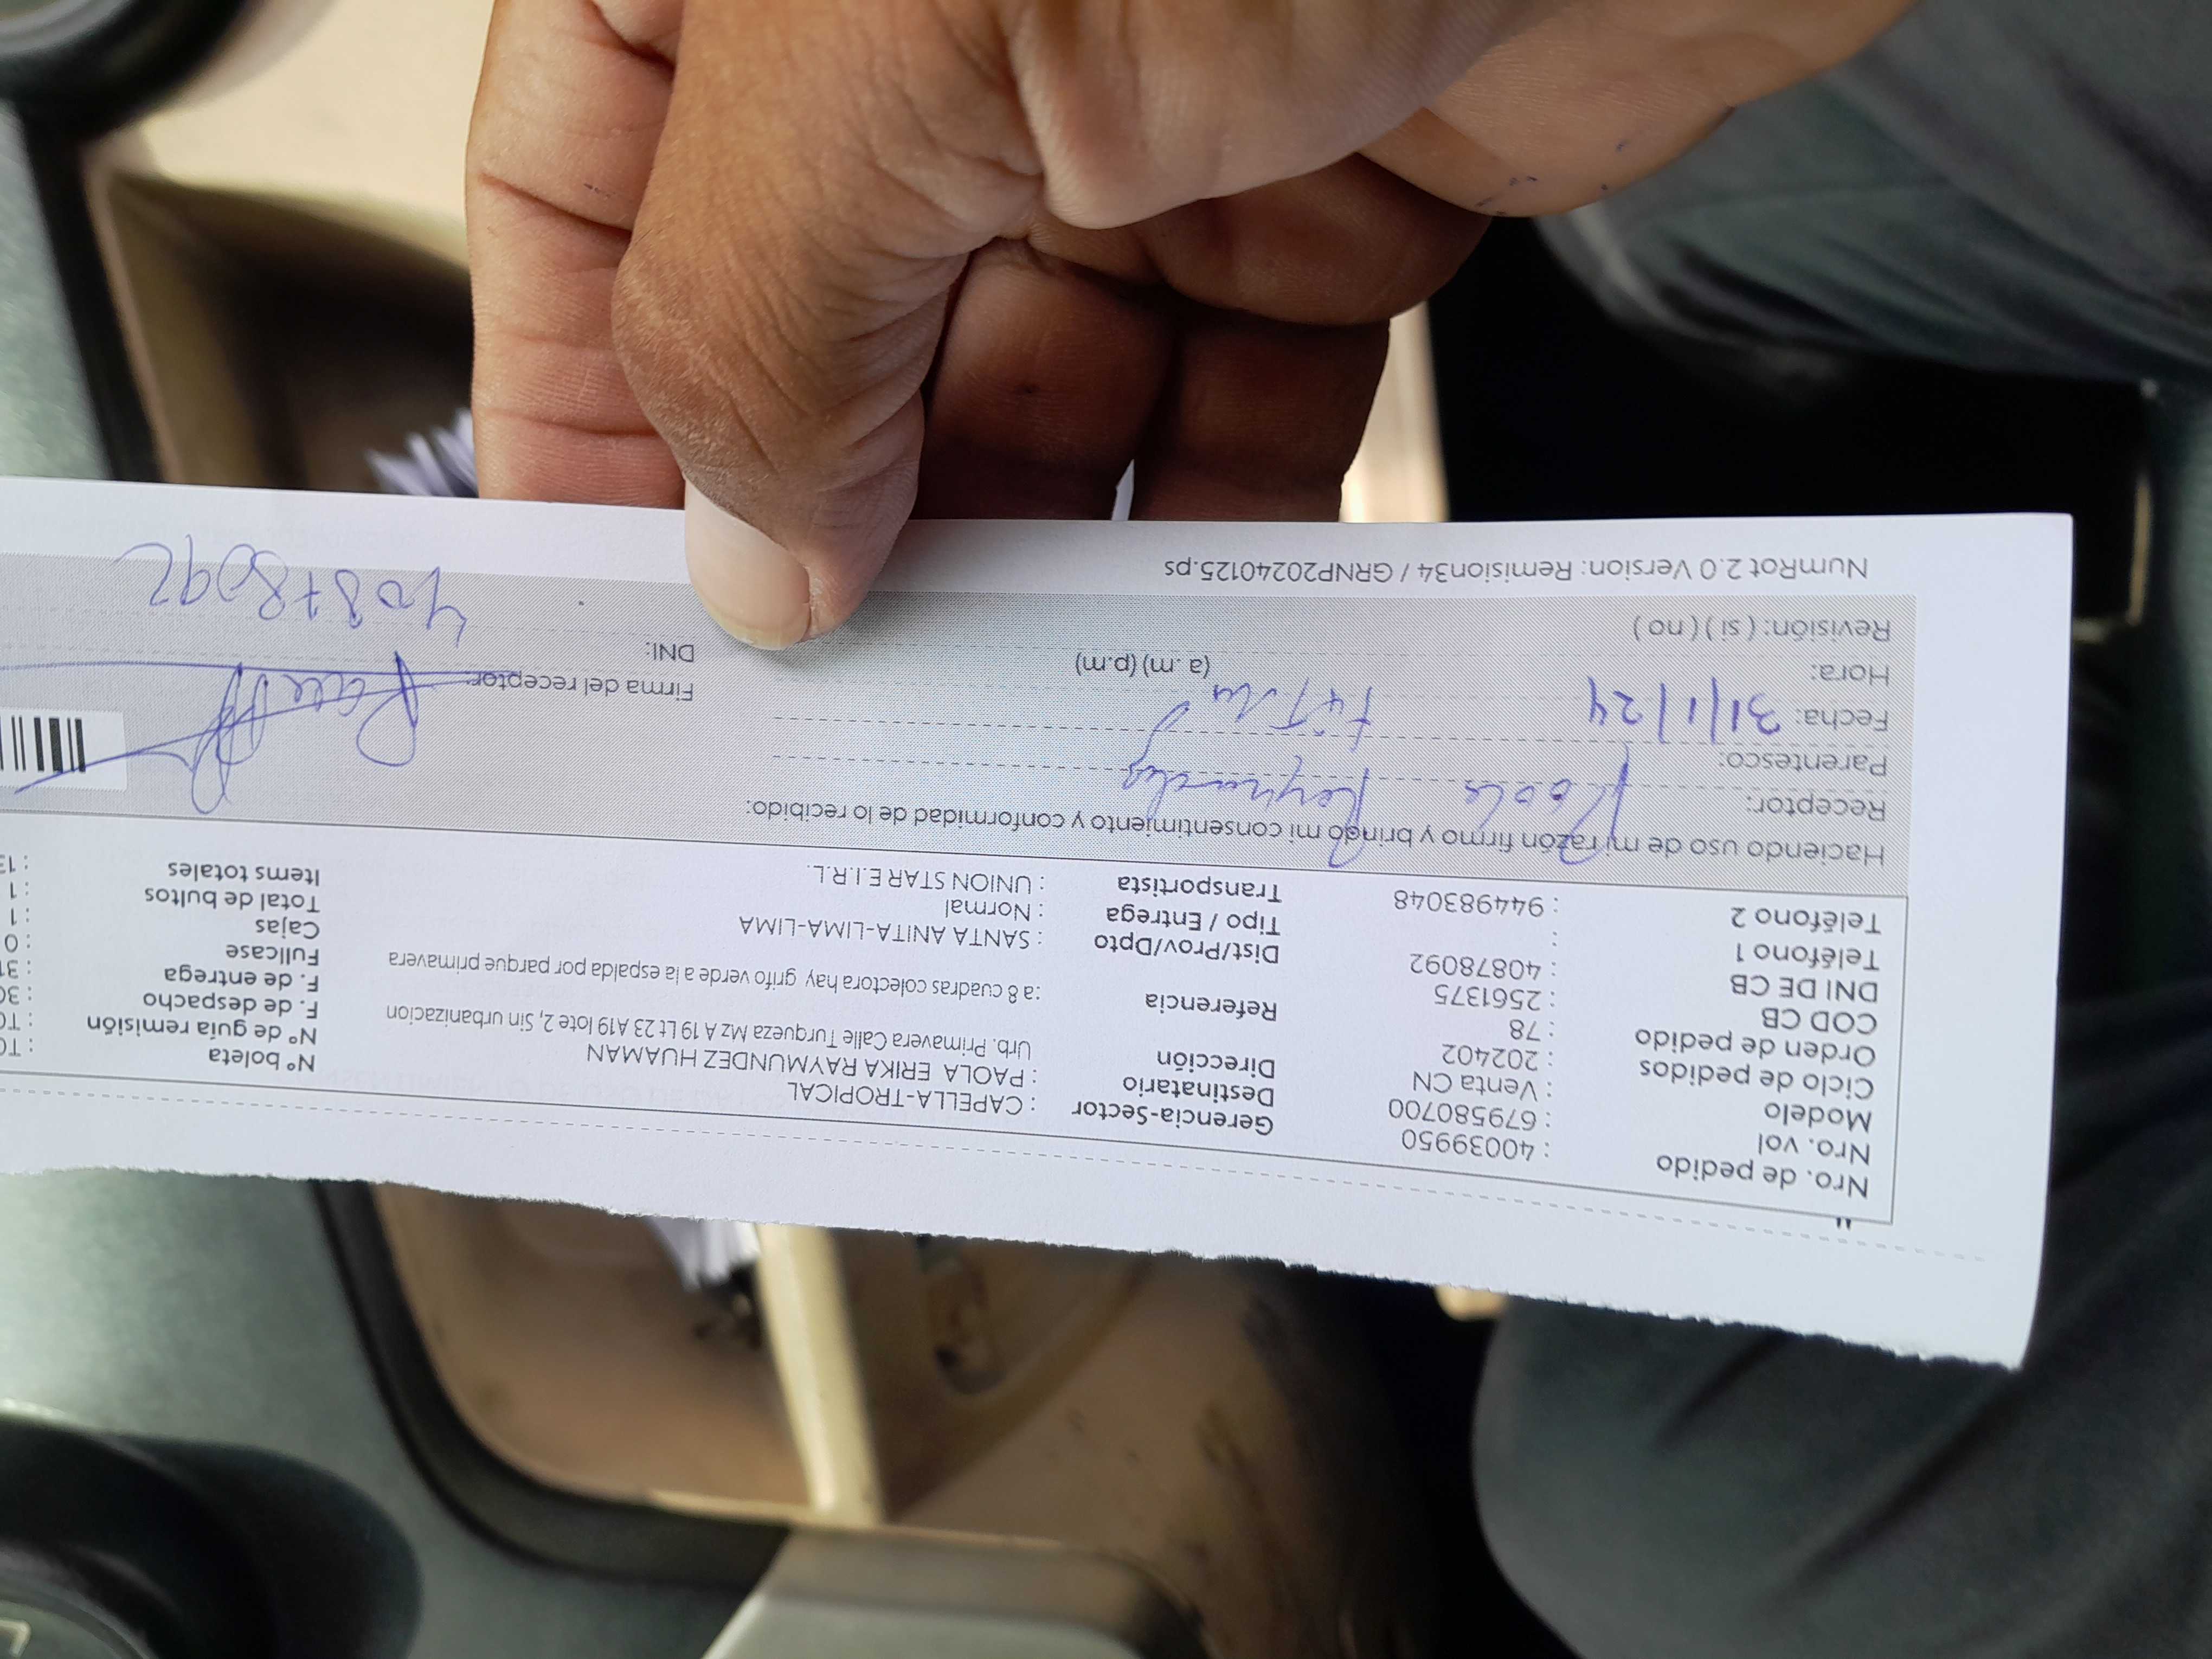 Nro. de pedido : 40039950 Gerencia-Sector : CAPELLA-TROPICAL Nº boleta : TO
Nro. vol : 679580700 Destinatario : PAOLA ERIKA RAYMUNDEZ HUAMAN Nº de guía remisión : TO
Modelo : Venta CN Dirección Urb. Primavera Calle Turqueza Mz A 19 Lt 23 A19 lote 2, Sin urbanizacion F. de despacho : 30
Ciclo de pedidos : 202402 F. de entrega : 31
Orden de pedido : 78 Referencia : a 8 cuadras colectora hay grifo verde a la espalda por parque primavera Fullcase : 0
COD CB : 2561375 Dist/Prov/Dpto : SANTA ANITA-LIMA-LIMA Cajas : 1
DNI DE CB : 40878092 Tipo / Entrega : Normal Total de bultos : 1
Teléfono 1 : Transportista : UNION STAR E.I.R.L. Items totales : 13
Teléfono 2 : 944983048
Haciendo uso de mi razón firmo y brindo mi consentimiento y conformidad de lo recibido:
Receptor:
Parentesco:
Fecha: 31/1/24 Firma del receptor:
Hora: (a. m) (p.m) DNI: 40878092
Revisión: ( si ) ( no )
NumRot 2.0 Version: Remision34 / GRNP20240125.ps